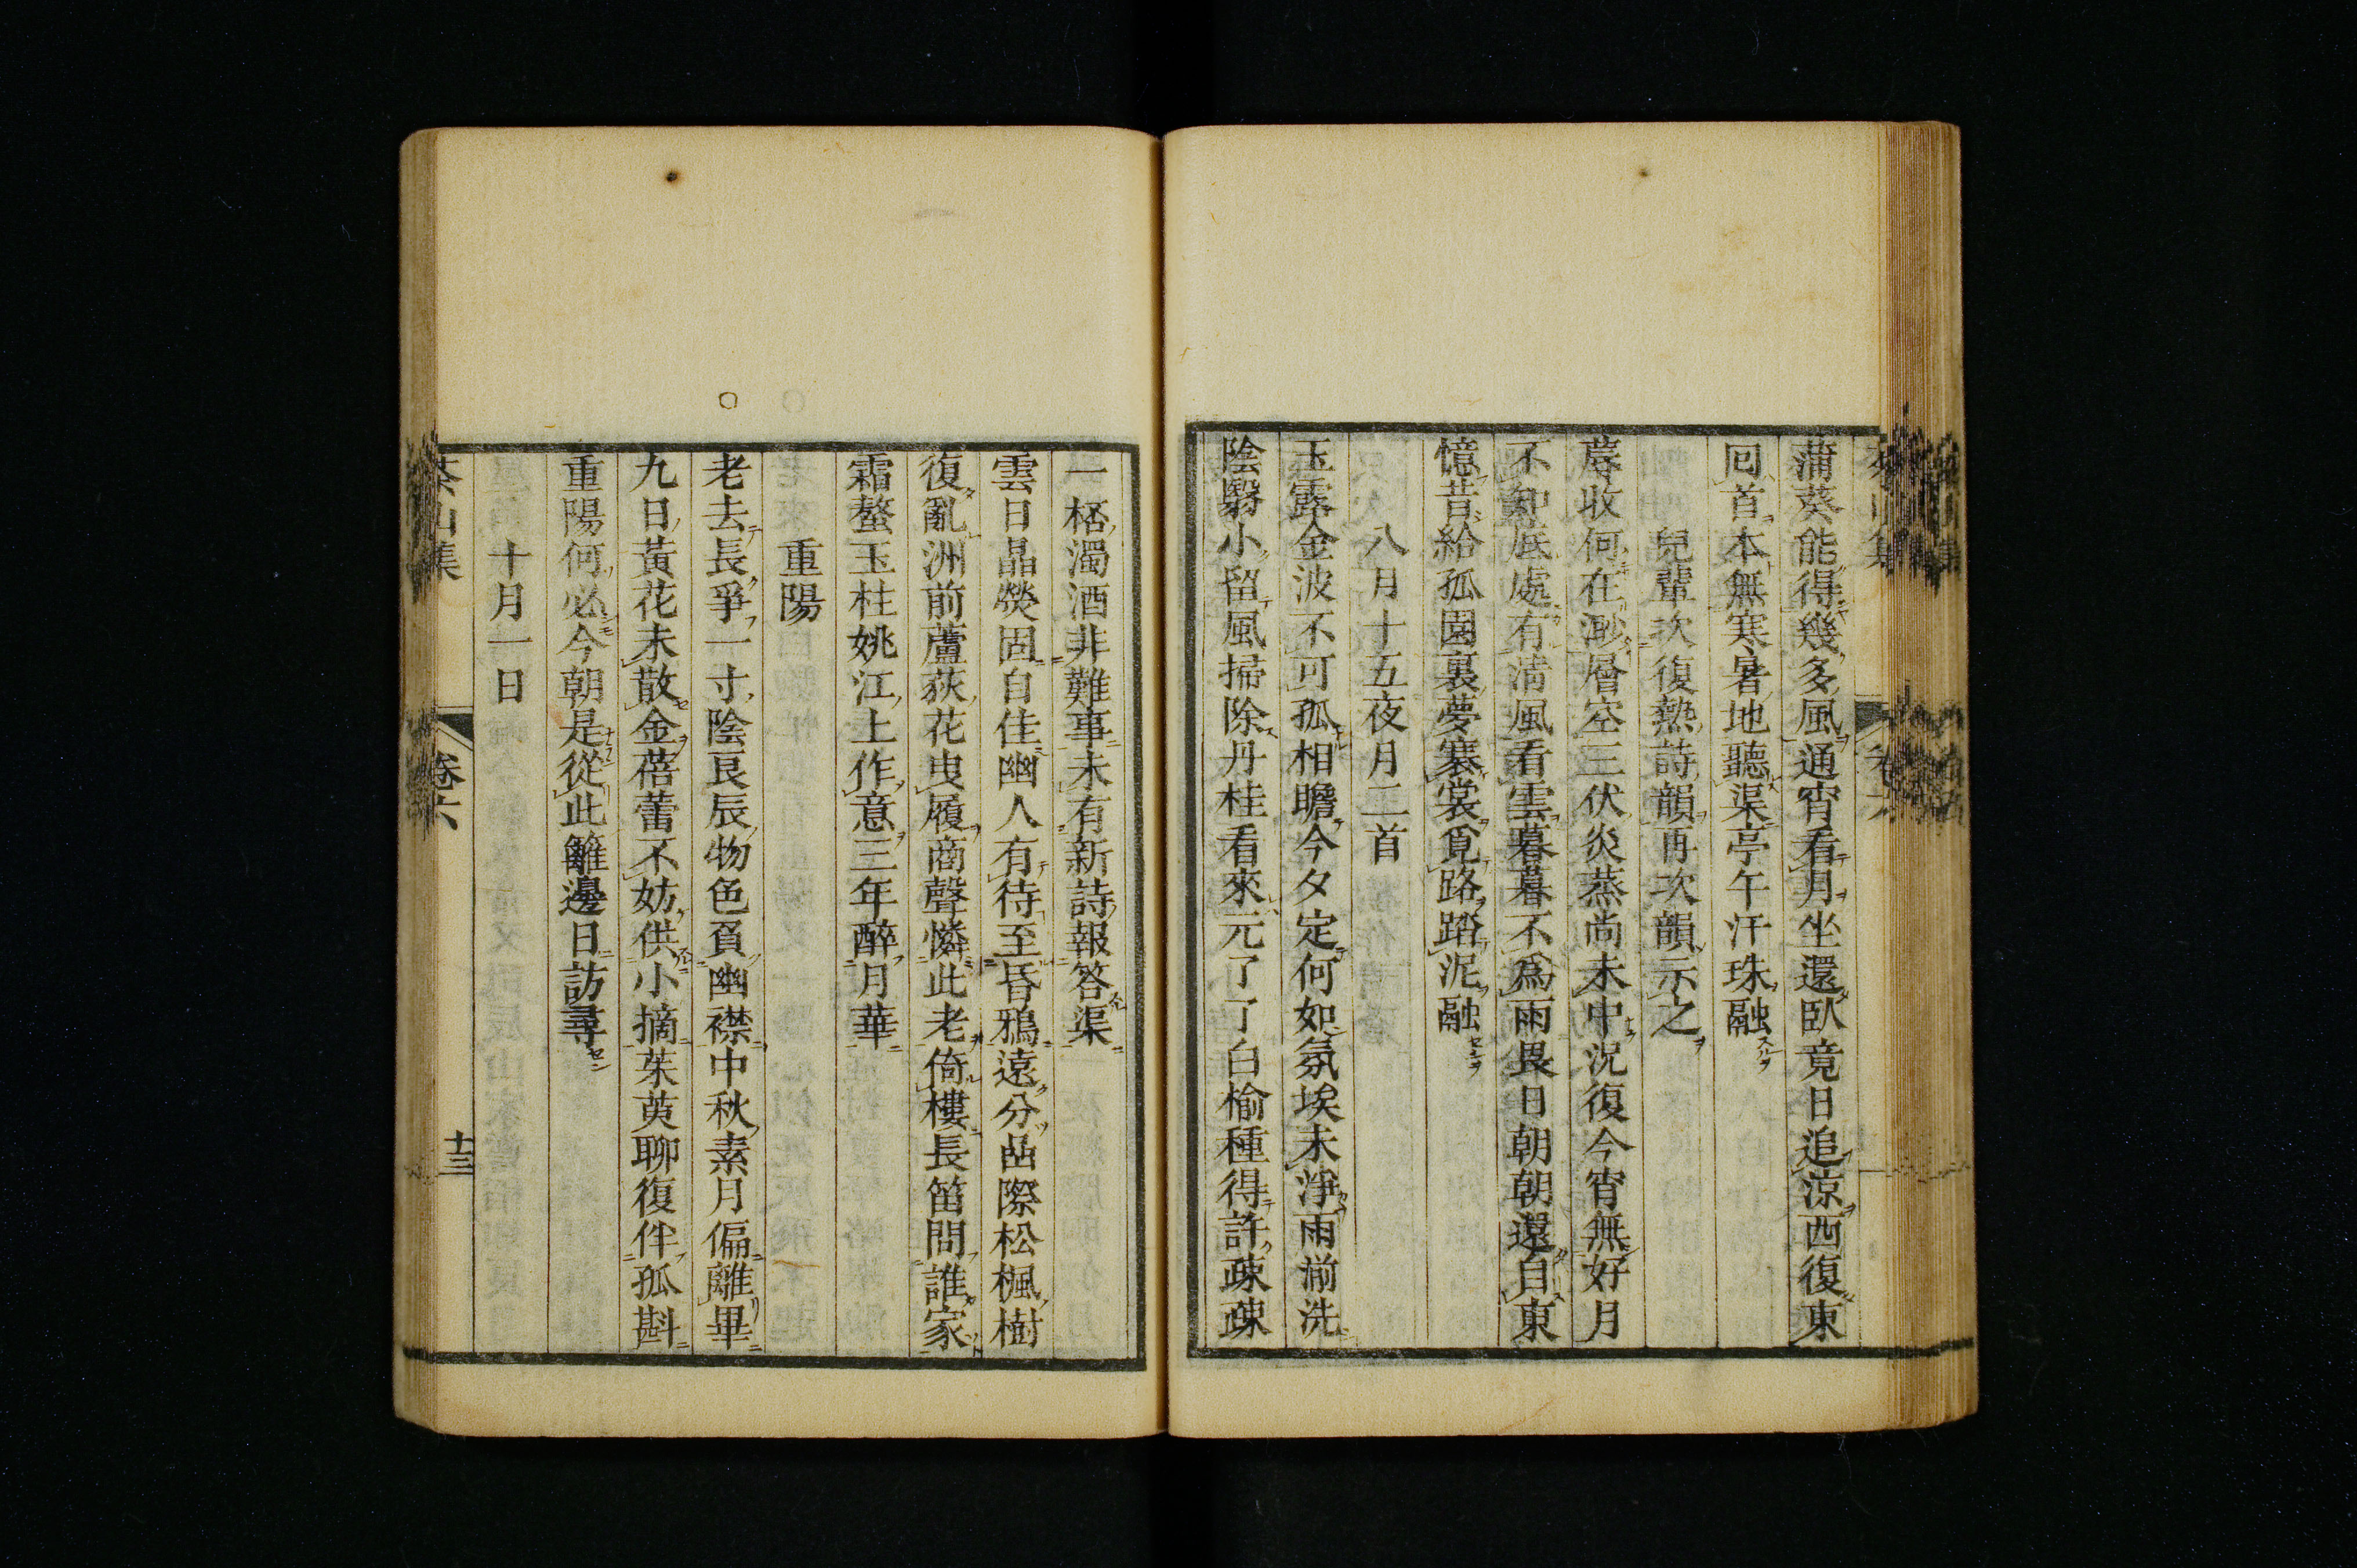 蒲葵能得幾多風通宵看月坐還臥竟日追涼西復東
回首本無寒暑地聽渠亭午汗珠融
兒輩次復熱詩韻再次韻示之
蓐收何在渺層空三伏炎蒸尚未中況復今宵無好月
不知底處有清風看雲暮暮不爲雨畏日朝朝還自東
憶昔給孤園裏夢褰裳覓路踏泥融
八月十五夜月二首
玉露金波不可孤相瞻今夕定何如氛埃未淨雨湔洗
陰翳小留風掃除丹桂看來元了了白榆種得許疎疎
一桮濁酒非難事未有新詩報答渠
雲日晶熒固自佳幽人有待至昏鴉遠分嵒際松楓樹
復亂洲前蘆荻花曳履商聲憐此老倚樓長笛問誰家
霜螯玉柱姚江上作意三年醉月華
重陽
老去長爭一寸陰良辰物色負幽襟中秋素月偏離畢
九日黃花未散金蓓蕾不妨供小摘茱萸聊復伴孤斟
重陽何必今朝是從此籬邊日訪尋
十月一日
茶山集 卷六 十三